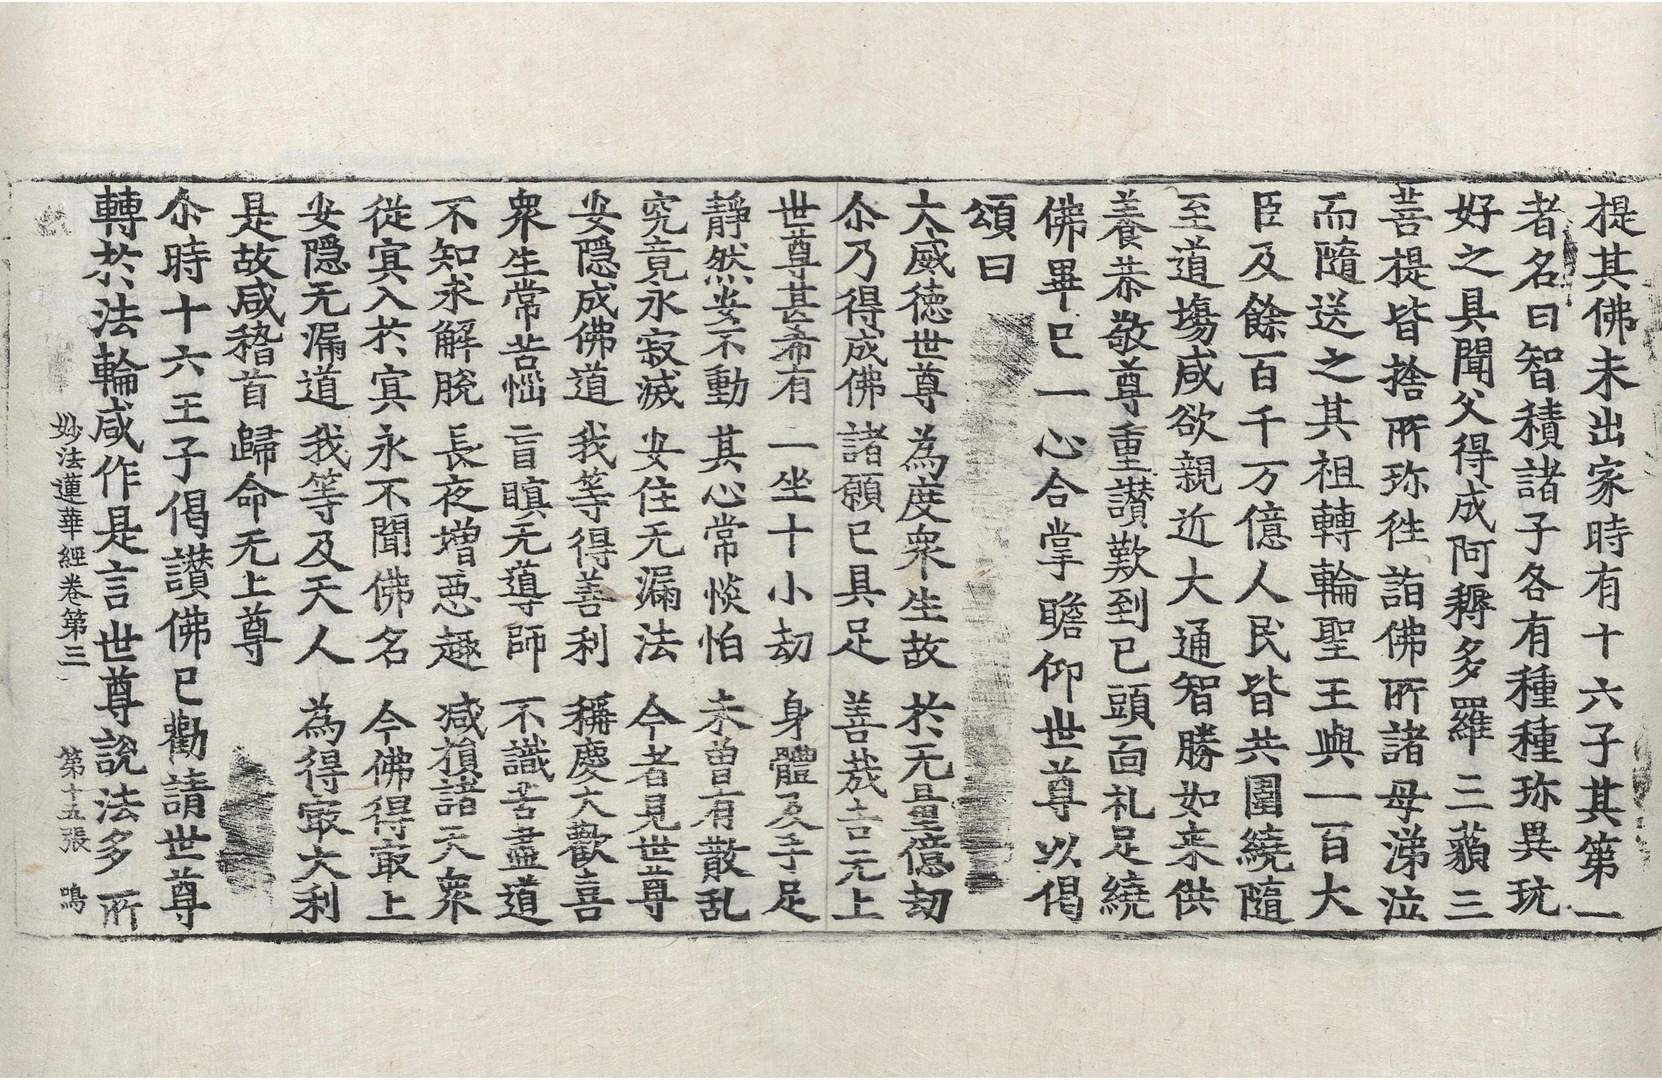 提其佛未出家時有十六子其第一
者名曰智積諸子各有種種珎異玩
好之具聞父得成阿耨多羅三藐三
菩提皆捨所珎徃詣佛所諸母涕泣
而隨送之其祖轉輪聖王與一百大
臣及餘百千万億人民皆共圍繞隨
至道塲咸欲親近大通智勝如来供
養恭敬尊重讃歎到已頭面礼足繞
佛畢已一心合掌瞻仰世尊以偈
頌曰
大威德世尊 為度衆生故 扵无量億劫
尒乃得成佛 諸願已具足 善㦲吉无上
世尊甚希有 一坐十小劫 身體及手足
静然安不動 其心常惔怕 未曽有散乱
究竟永寂滅 安住无漏法 今者見世尊
安隠成佛道 我等得善利 稱慶大歡喜
衆生常苦惱 盲瞑无導師 不識苦盡道
不知求解脫 長夜増惡趣 减損諸天衆
從冥入扵冥 永不聞佛名 今佛得㝡上
安隠无漏道 我等及天人 為得㝡大利
是故咸稽首 歸命无上尊
尒時十六王子偈讃佛已勸請世尊
轉扵法輪咸作是言世尊說法多所
妙法蓮華經卷第三 第十五張 鳴